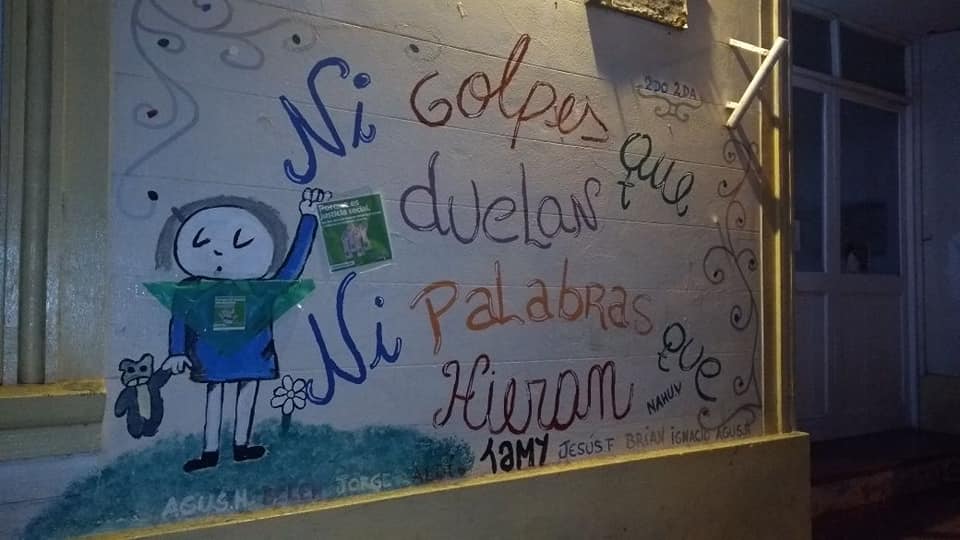 Ni golpes que
duelan
Ni palabras que
Hieran
2DO 2DA
Porque es
justicia social.
NAHU.V
TAMY JESÚS.F BRIAN IGNACIO AGUS.S
AGUS.M JORGE